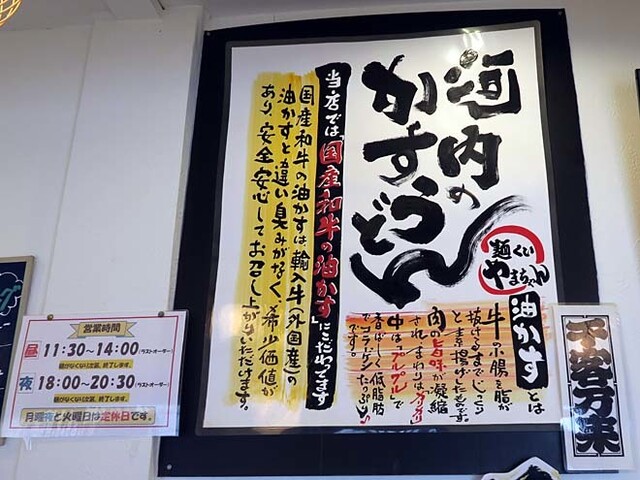 河内の
かすうどん
麺くい
やまちゃん
油かすとは
牛の小腸を脂が
抜けるまでじっくり
と素揚げしたものです。
肉の旨味が凝縮
されまわりはカリカリ
中はプルプルで
香ばしく低脂肪
でコラーゲンたっぷり
です。
当店では「国産和牛の油かす」にこだわってます
国産和牛の油かすは、輸入牛(外国産)の
油かすと違い臭みがなく、希少価値が
あり、安全安心してお召し上がりいただけます。
千客万来
営業時間
昼 11:30〜14:00(ラストオーダー)
麺がなくなり次第、終了します。
夜 18:00〜20:30(ラストオーダー)
麺がなくなり次第、終了します。
月曜夜と火曜日は定休日です。